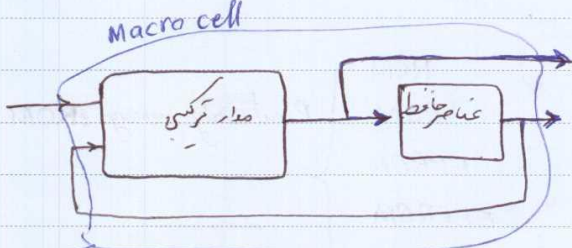 Macro cell
مدار ترکیبی
عناصر حافظه